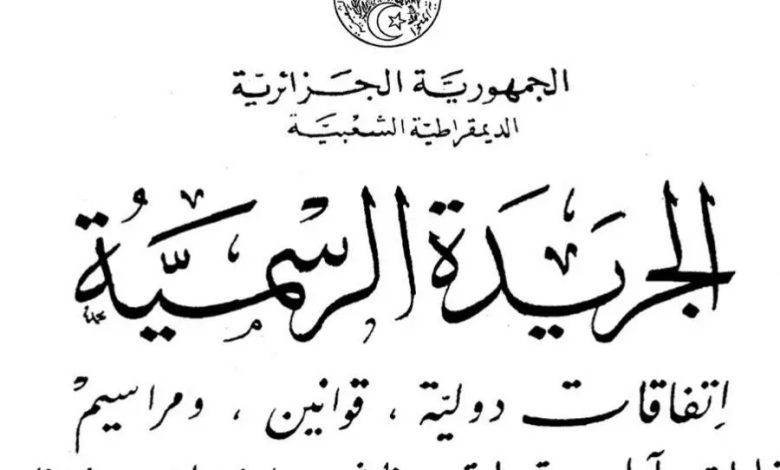 الجمهوريّة الجزائريّة
الديمقراطيّة الشعبيّة
الجريدة الرسميّة
إتفاقات دوليّة ، قوانين ، ومراسيم